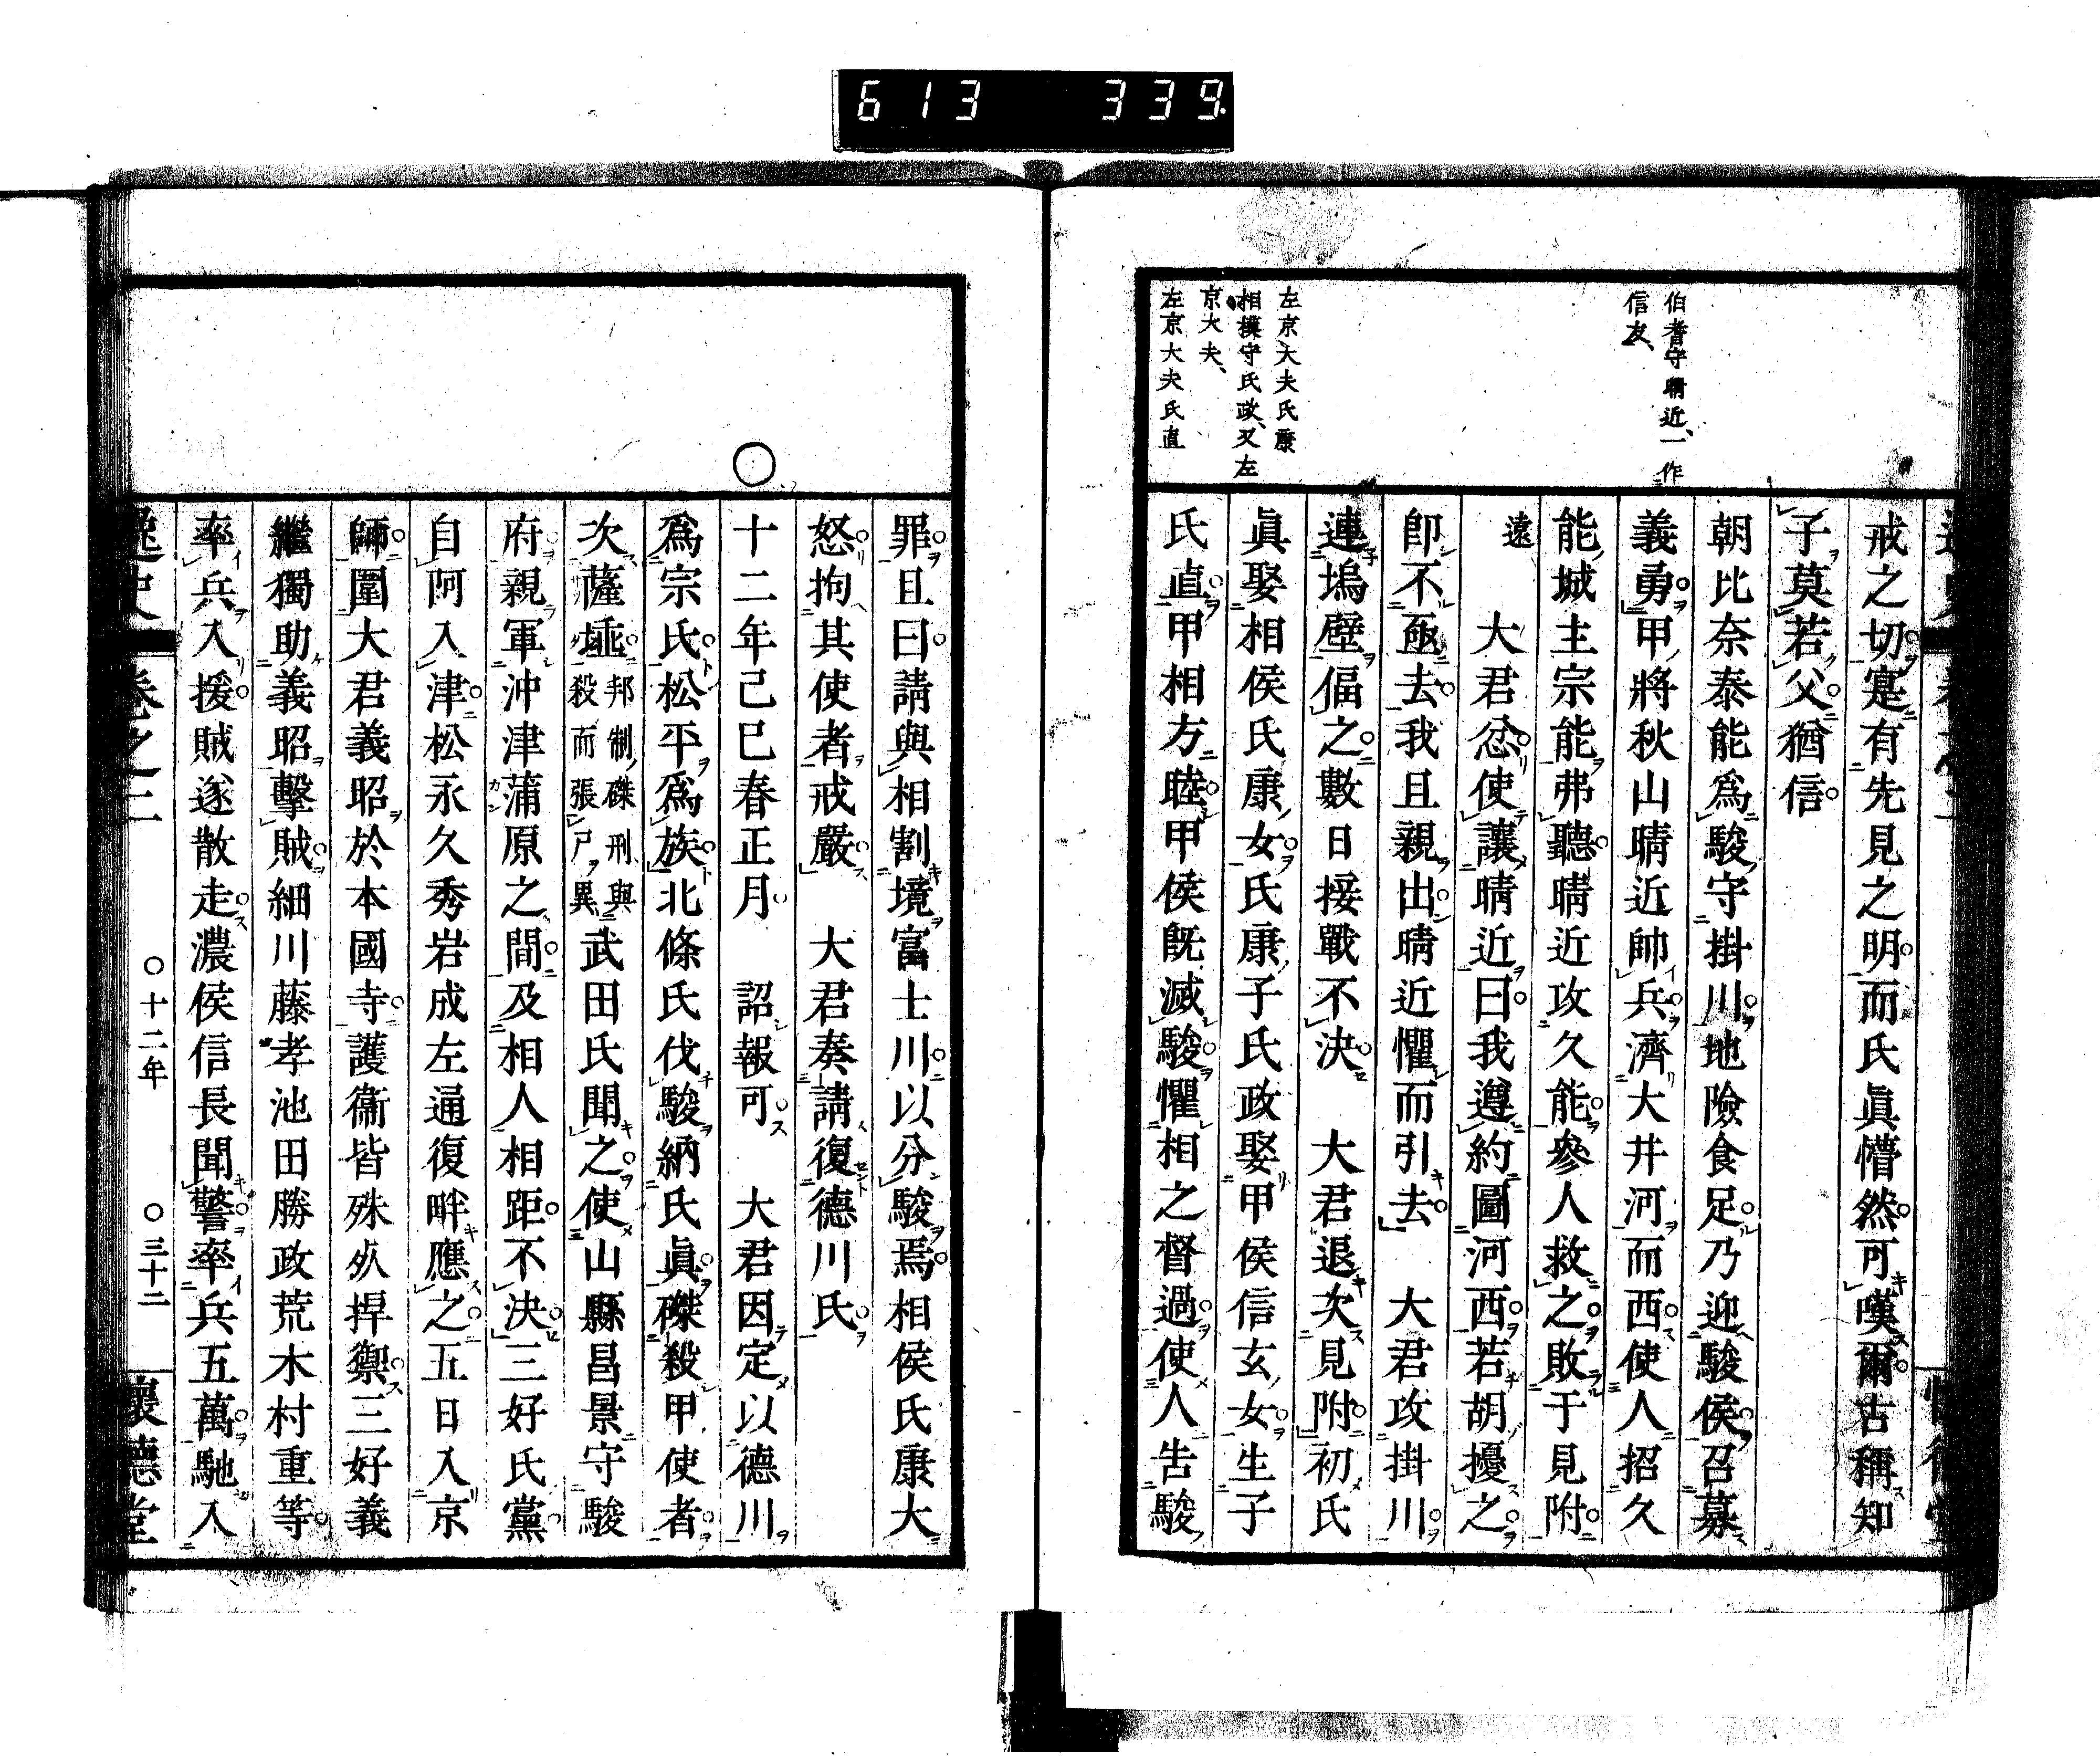 613 339
伯耆守晴近、一作
信友、
左京大夫氏康
相模守氏政、又左
京大夫、
左京大夫氏直
戒之切寔有先見之明而氏眞懵然可嘆爾古稱知
子莫若父猶信
朝比奈泰能爲駿守掛川地險食足乃迎駿侯召募
義勇甲將秋山晴近帥兵濟大井河而西使人招久
能城主宗能弗聽晴近攻久能參人救之敗于見附
遠 大君忿使讓晴近曰我遵約圖河西若胡擾之
卽不亟去我且親出晴近懼而引去 大君攻掛川
連塢壁偪之數日接戰不決 大君退次見附初氏
眞娶相侯氏康女氏康子氏政娶甲侯信玄女生子
氏直甲相方睦甲侯旣滅駿懼相之督過使人告駿
罪且曰請與相割境富士川以分駿焉相侯氏康大
怒拘其使者戒嚴 大君奏請復德川氏
十二年己巳春正月 詔報可 大君因定以德川
爲宗氏松平爲族北條氏伐駿納氏眞磔殺甲使者
次薩埵邦制磔刑與殺而張尸異武田氏聞之使山縣昌景守駿
府親軍沖津蒲原之間及相人相距不決三好氏黨
自阿入津松永久秀岩成左通復畔應之五日入京
師圍大君義昭於本國寺護衞皆殊死捍禦三好義
繼獨助義昭擊賊細川藤孝池田勝政荒木村重等
率兵入援賊遂散走濃侯信長聞警率兵五萬馳入
逸史 卷之二 〇十二年 〇三十二 懷德堂